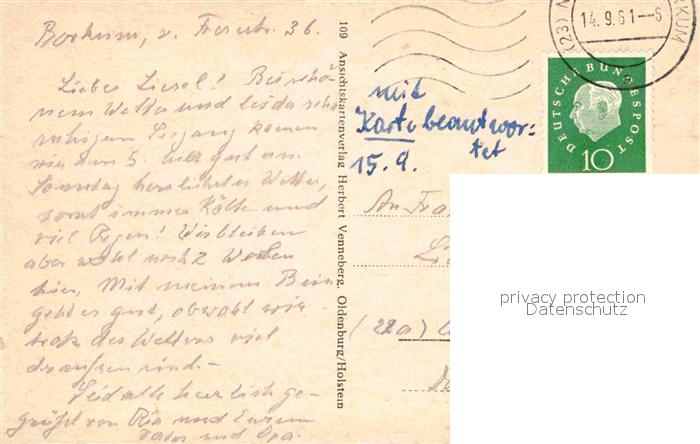 Borkum, v. Fresestr. 36.
Lieber Liesel! Bei schö-
nem Wetter und leider sehr
ruhigem Seegang kamen
wir am 5. hier gut an.
Sonntag herrlichstes Wetter,
sonst immer Kälte und
viel Regen! Wir bleiben
aber wohl noch 2 Wochen
hier. Mit meinem Bein
geht es gut, obwohl wir
trotz des Wetters viel
draußen sind. -
Seid alle herzlich ge-
grüßt von Ria und Eurem
Vater und Opa.
109 Ansichtskartenverlag Herbert Venneberg, Oldenburg/Holstein
mit
Karte beantwor=
tet
15.9.
(23)
14.9.61--6
RKUM
DEUTSCHE BUNDESPOST
10
An Fra
(22a)
privacy protection
Datenschutz